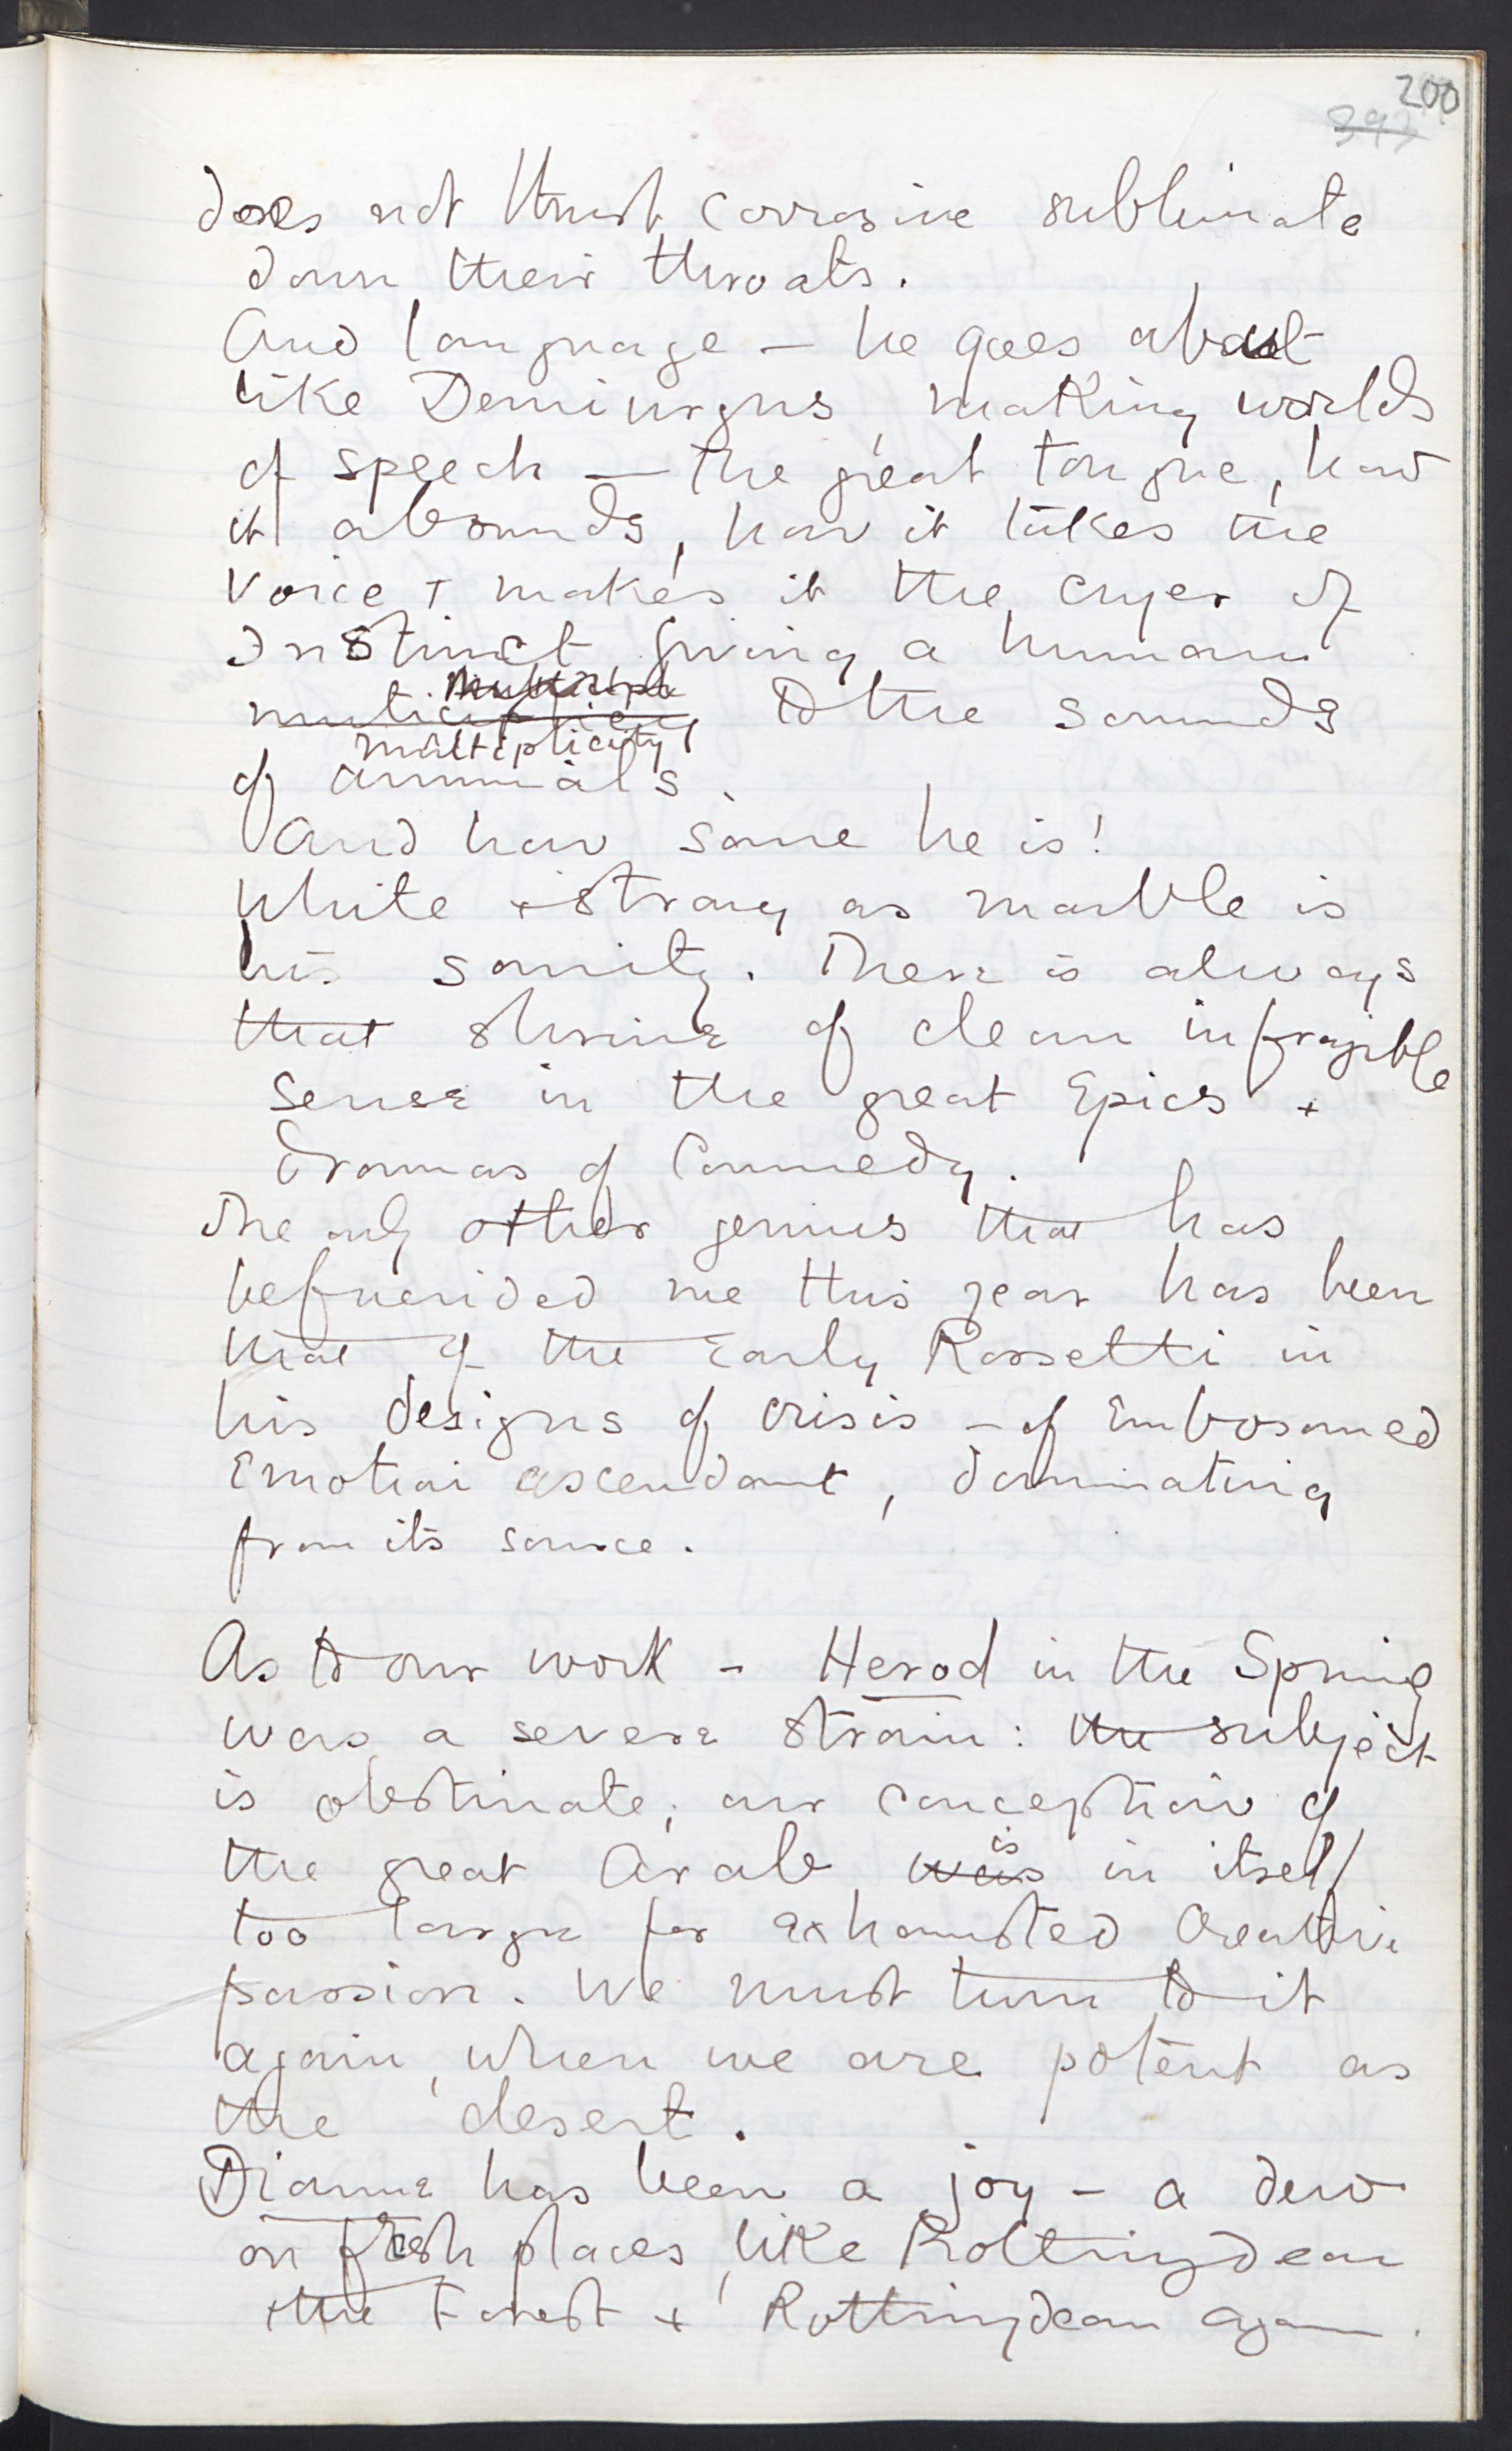 200
393
does not thrust corrosive sublimate
down their throats.
And language — he goes about
like Demiurgus, making worlds
of speech — the great tongue, how
it abounds, how it takes the
voice + makes it the cryer of
Instinct giving a human
multiplicity to the sounds
of animals.
And how sane he is!
White + strong as marble is
his sanity. There is always
that shrine of clean infragible
sense in the great Epics +
Dramas of Commedy.
The only other genius that has
befriended me this year has been
that of the Early Rossetti in
his designs of crisis – of Embosomed
Emotion ascendant, dominating
from its source.
As to our work – Herod in the Spring
was a severe strain: the subject
is obstinate; our conception of
the great Arab is in itself
too large for exhausted creative
passion. We must turn to it
again, when we are potent as
the desert.
Dianne has been a joy – a dew
on fresh places, like Rottingdean
+ the Forest + Rottingdean again.